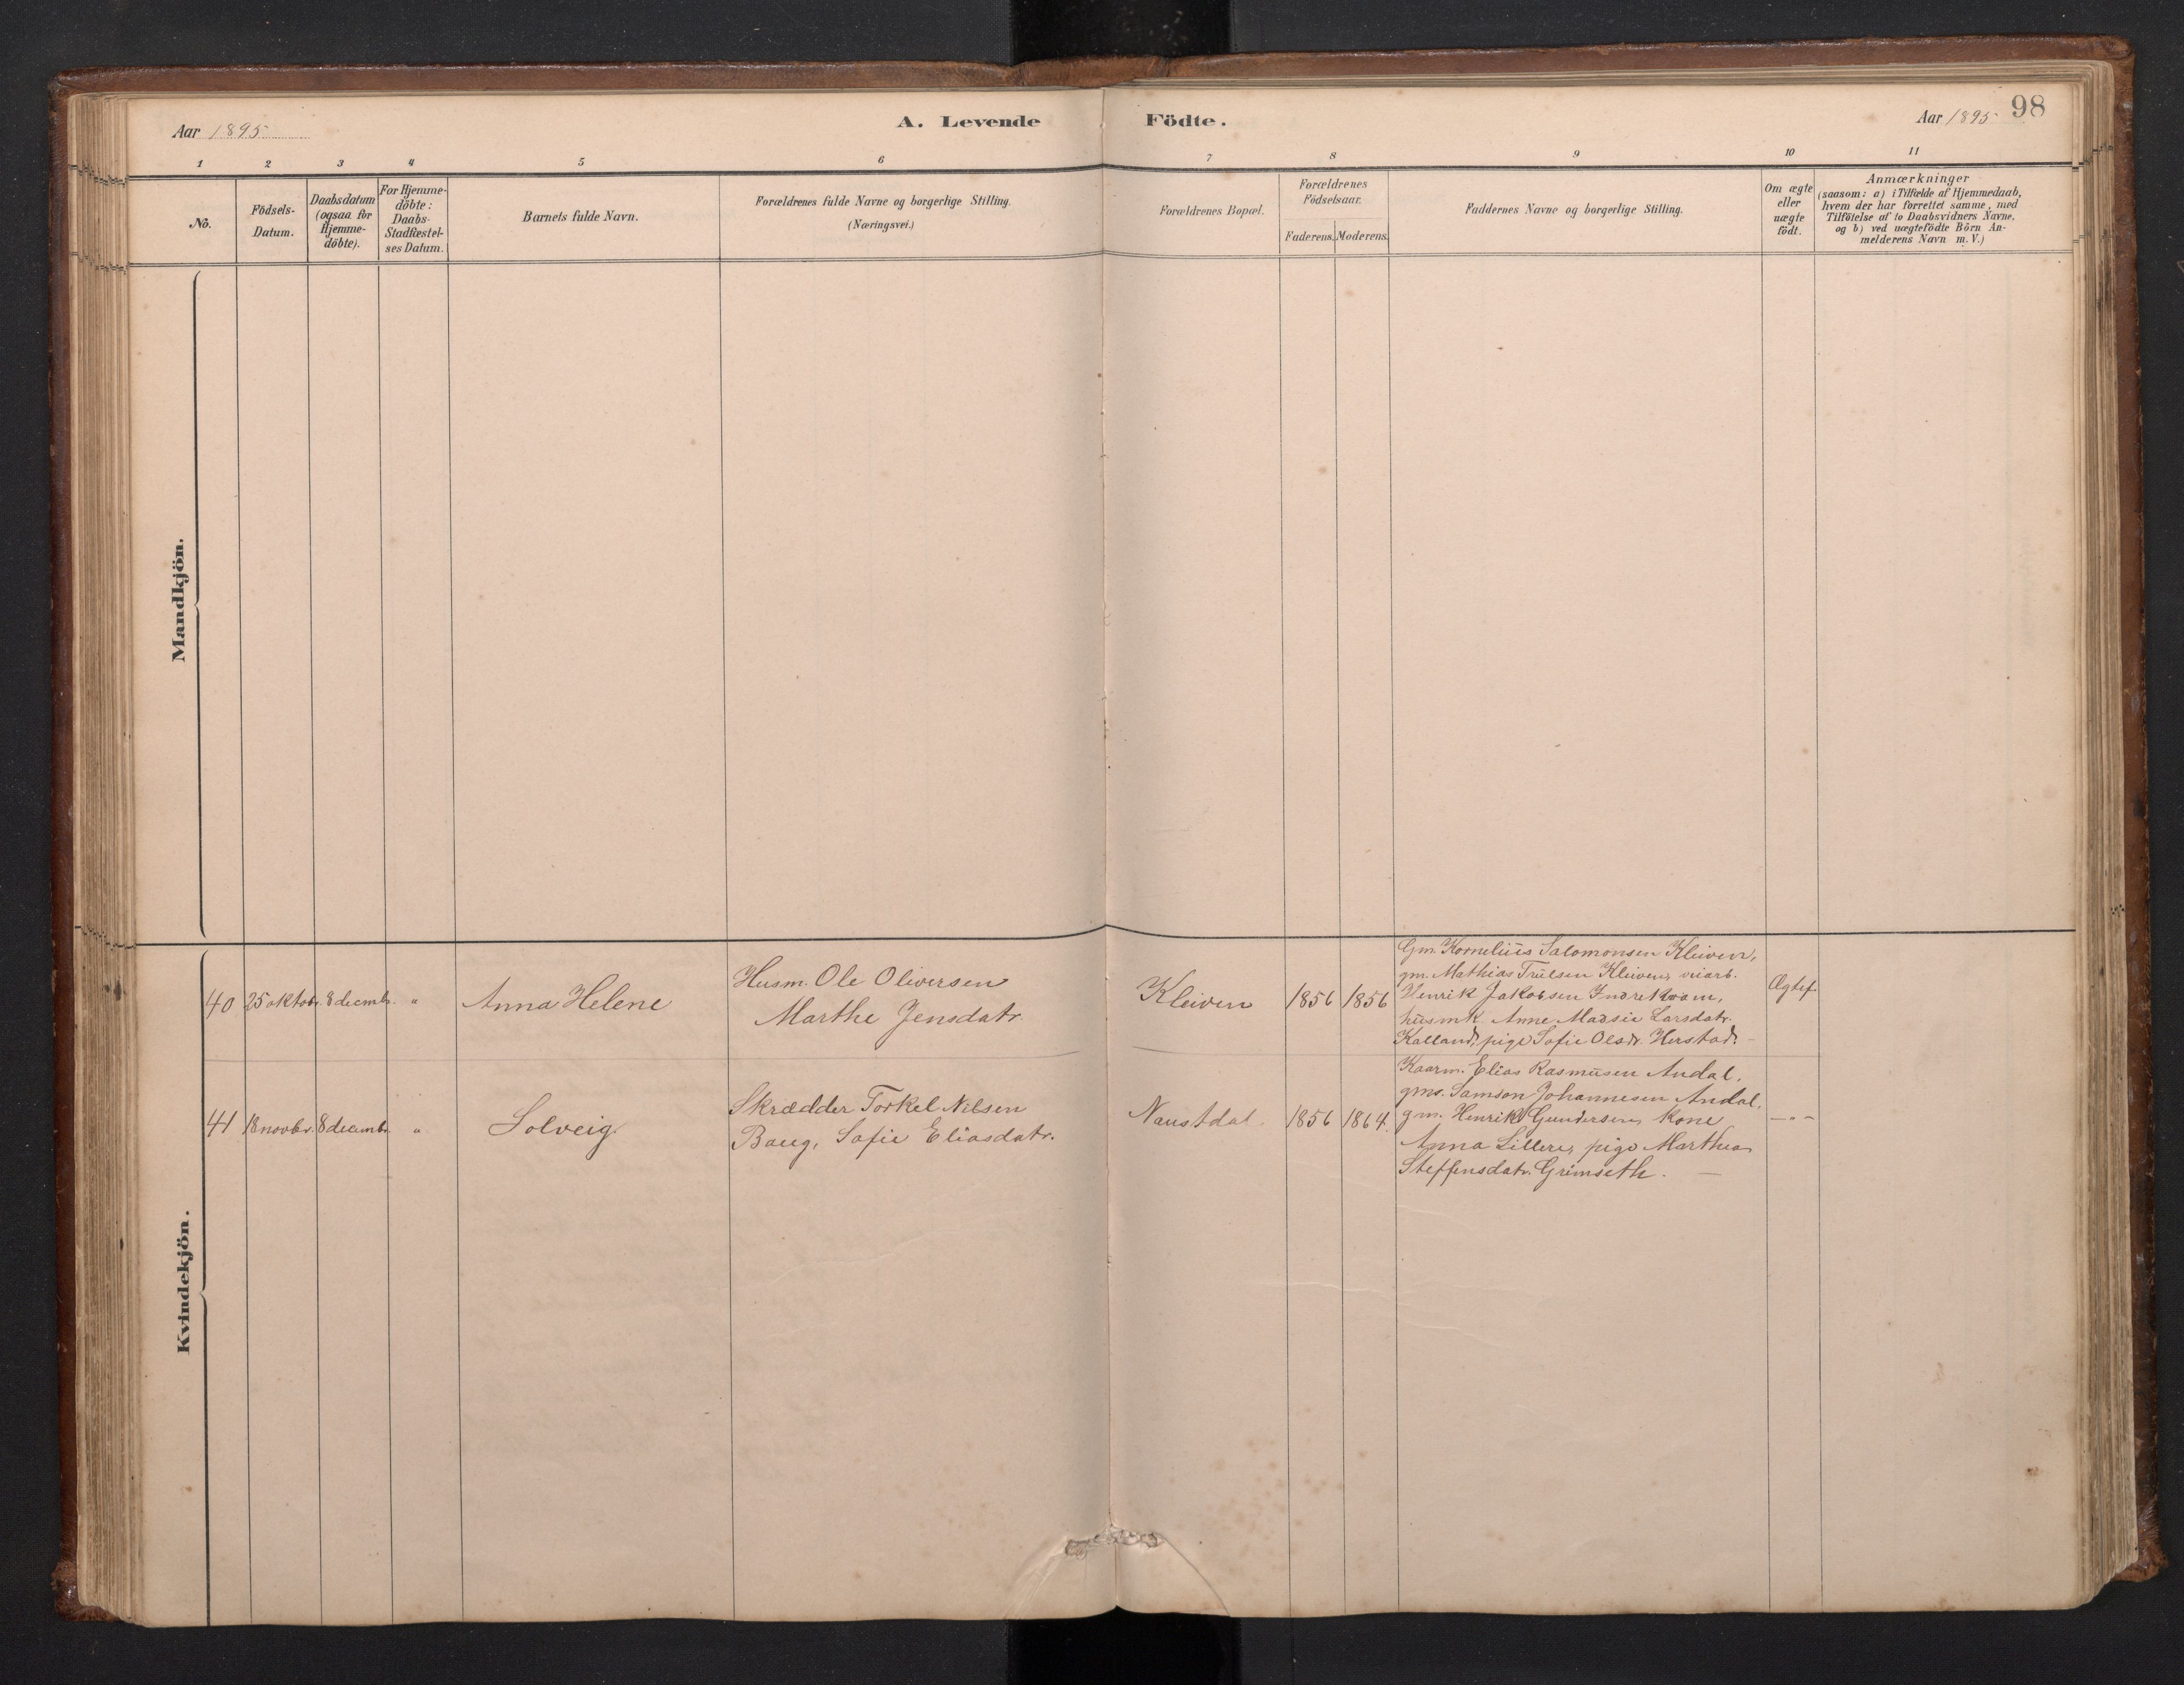 Aar 1895
A. Levende Födte.
Aar 1895
98
1 2 3 4 5 6 7 8 9 10 11
No.
Födsels-
Datum.
Daabsdatum
(ogsaa for
Hjemme-
döbte).
For Hjemme-
döbte:
Daabs-
Stadfæstel-
ses Datum.
Barnets fulde Navn.
Forældrenes fulde Navne og borgerlige Stilling.
(Næringsvei.)
Forældrenes Bopæl.
Forældrenes
Födselsaar.
Faderens. Moderens.
Faddernes Navne og borgerlige Stilling.
Om ægte
eller
uægte
födt.
Anmærkninger
(saasom: a) i Tilfælde af Hjemmedaab,
hvem der har forrettet samme, med
Tilföielse af to Daabsvidners Navne,
og b) ved uægtefödte Börn An-
melderens Navn m. V.)
Mandkjön.
Kvindekjön.
40
25 oktobr.
8 decembr.
"
Anna Helene
Husm. Ole Oliversen
Marthe Jensdatr.
Kleiven
1856
1856
Gm. Kornelius Salomonsen Kleiven,
gm. Mathias Trulsen Kleiven, veiarb.
Henrik Jakobsen Indrekvam,
husmk. Anne Madsie Larsdatr.
Kalland, pige Sofie Olsdr. Herstad. -
Ægtef.
41
18 novbr.
8 decembr.
"
Solveig.
Skrædder Torkel Nilsen
Baug, Sofie Eliasdatr.
Naustdal.
1856
1864.
Kaarm. Elias Rasmusen Andal,
gms. Samson Johannesen Andal,
gm. Henrik Gundersens kone
Anna Lillere, pige Marthea
Steffensdatr. Grimseth. —
—"—